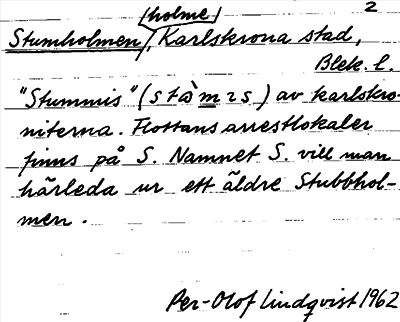 /holme/ 2
Stumholmen/, Karlskrona stad,
Blek. l.
"Stummis" (stàmɩs) av karlskro-
niterna. Flottans arrestlokaler
finns på S. Namnet S. vill man
härleda ur ett äldre Stubbhol-
men.
Per-Olof Lindqvist 1962